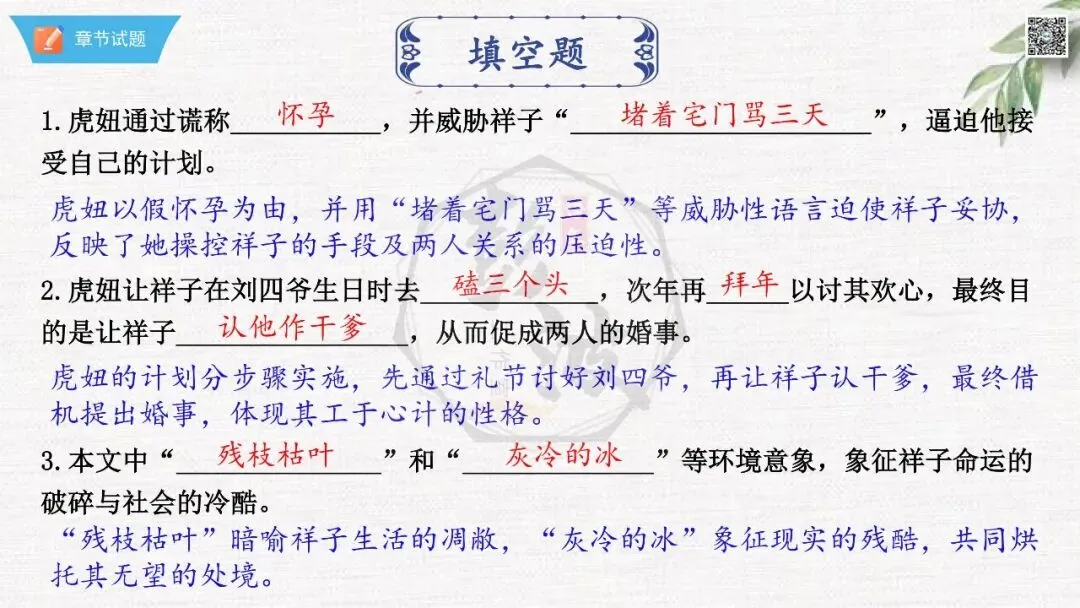 章节试题
填空题
1. 虎妞通过谎称 怀孕 ，并威胁祥子“ 堵着宅门骂三天 ”，逼迫他接
受自己的计划。
虎妞以假怀孕为由，并用“堵着宅门骂三天”等威胁性语言迫使祥子妥协，
反映了她操控祥子的手段及两人关系的压迫性。
2. 虎妞让祥子在刘四爷生日时去 磕三个头 ，次年再 拜年 以讨其欢心，最终目
的是让祥子 认他作干爹 ，从而促成两人的婚事。
虎妞的计划分步骤实施，先通过礼节讨好刘四爷，再让祥子认干爹，最终借
机提出婚事，体现其工于心计的性格。
3. 本文中“ 残枝枯叶 ”和“ 灰冷的冰 ”等环境意象，象征祥子命运的
破碎与社会的冷酷。
“残枝枯叶”暗喻祥子生活的凋敝，“灰冷的冰”象征现实的残酷，共同烘
托其无望的处境。